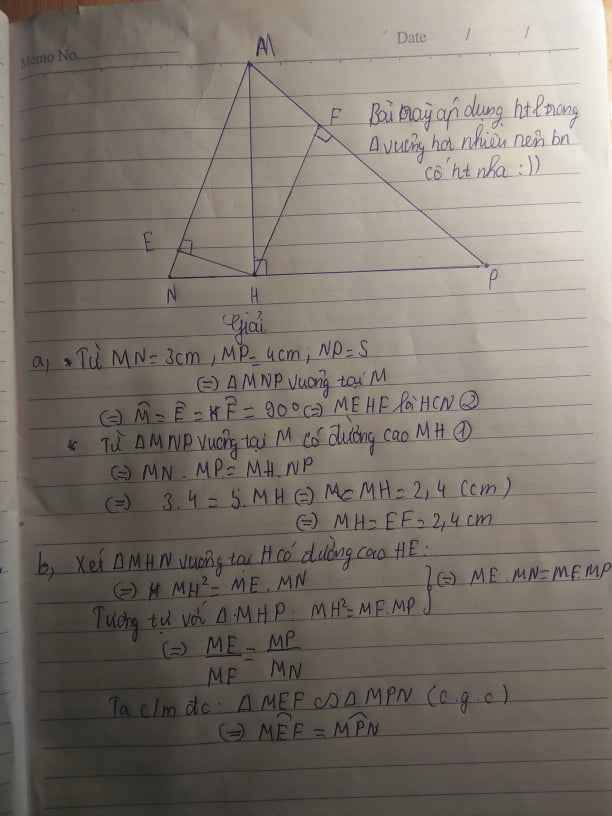 Memo No.
Date / /
M
F
Bài này áp dụng htl trong
Δ vuông hơi nhiều nên bn
cố ht nha :))
E
N
H
P
Giải
a, * Từ MN = 3cm, MP = 4cm, NP = 5
(=) ΔMNP vuông tại M
(=) M̂ = Ê = F̂ = 90° (=) MEHF là HCN ②
* Từ ΔMNP vuông tại M có đường cao MH ①
(=) MN . MP = MH . NP
(=) 3.4 = 5.MH (=) MH = 2,4 (cm)
(=) MH = EF = 2,4 cm
b, Xét ΔMHN vuông tại H có đường cao HE:
(=) MH² = ME . MN
Tương tự với Δ MHP: MH² = MF.MP
(=) ME . MN = MF.MP
(=) ME/MF = MP/MN
Ta c/m đc: ΔMEF ∽ ΔMPN (c.g.c)
(=) MÊF = MP̂N